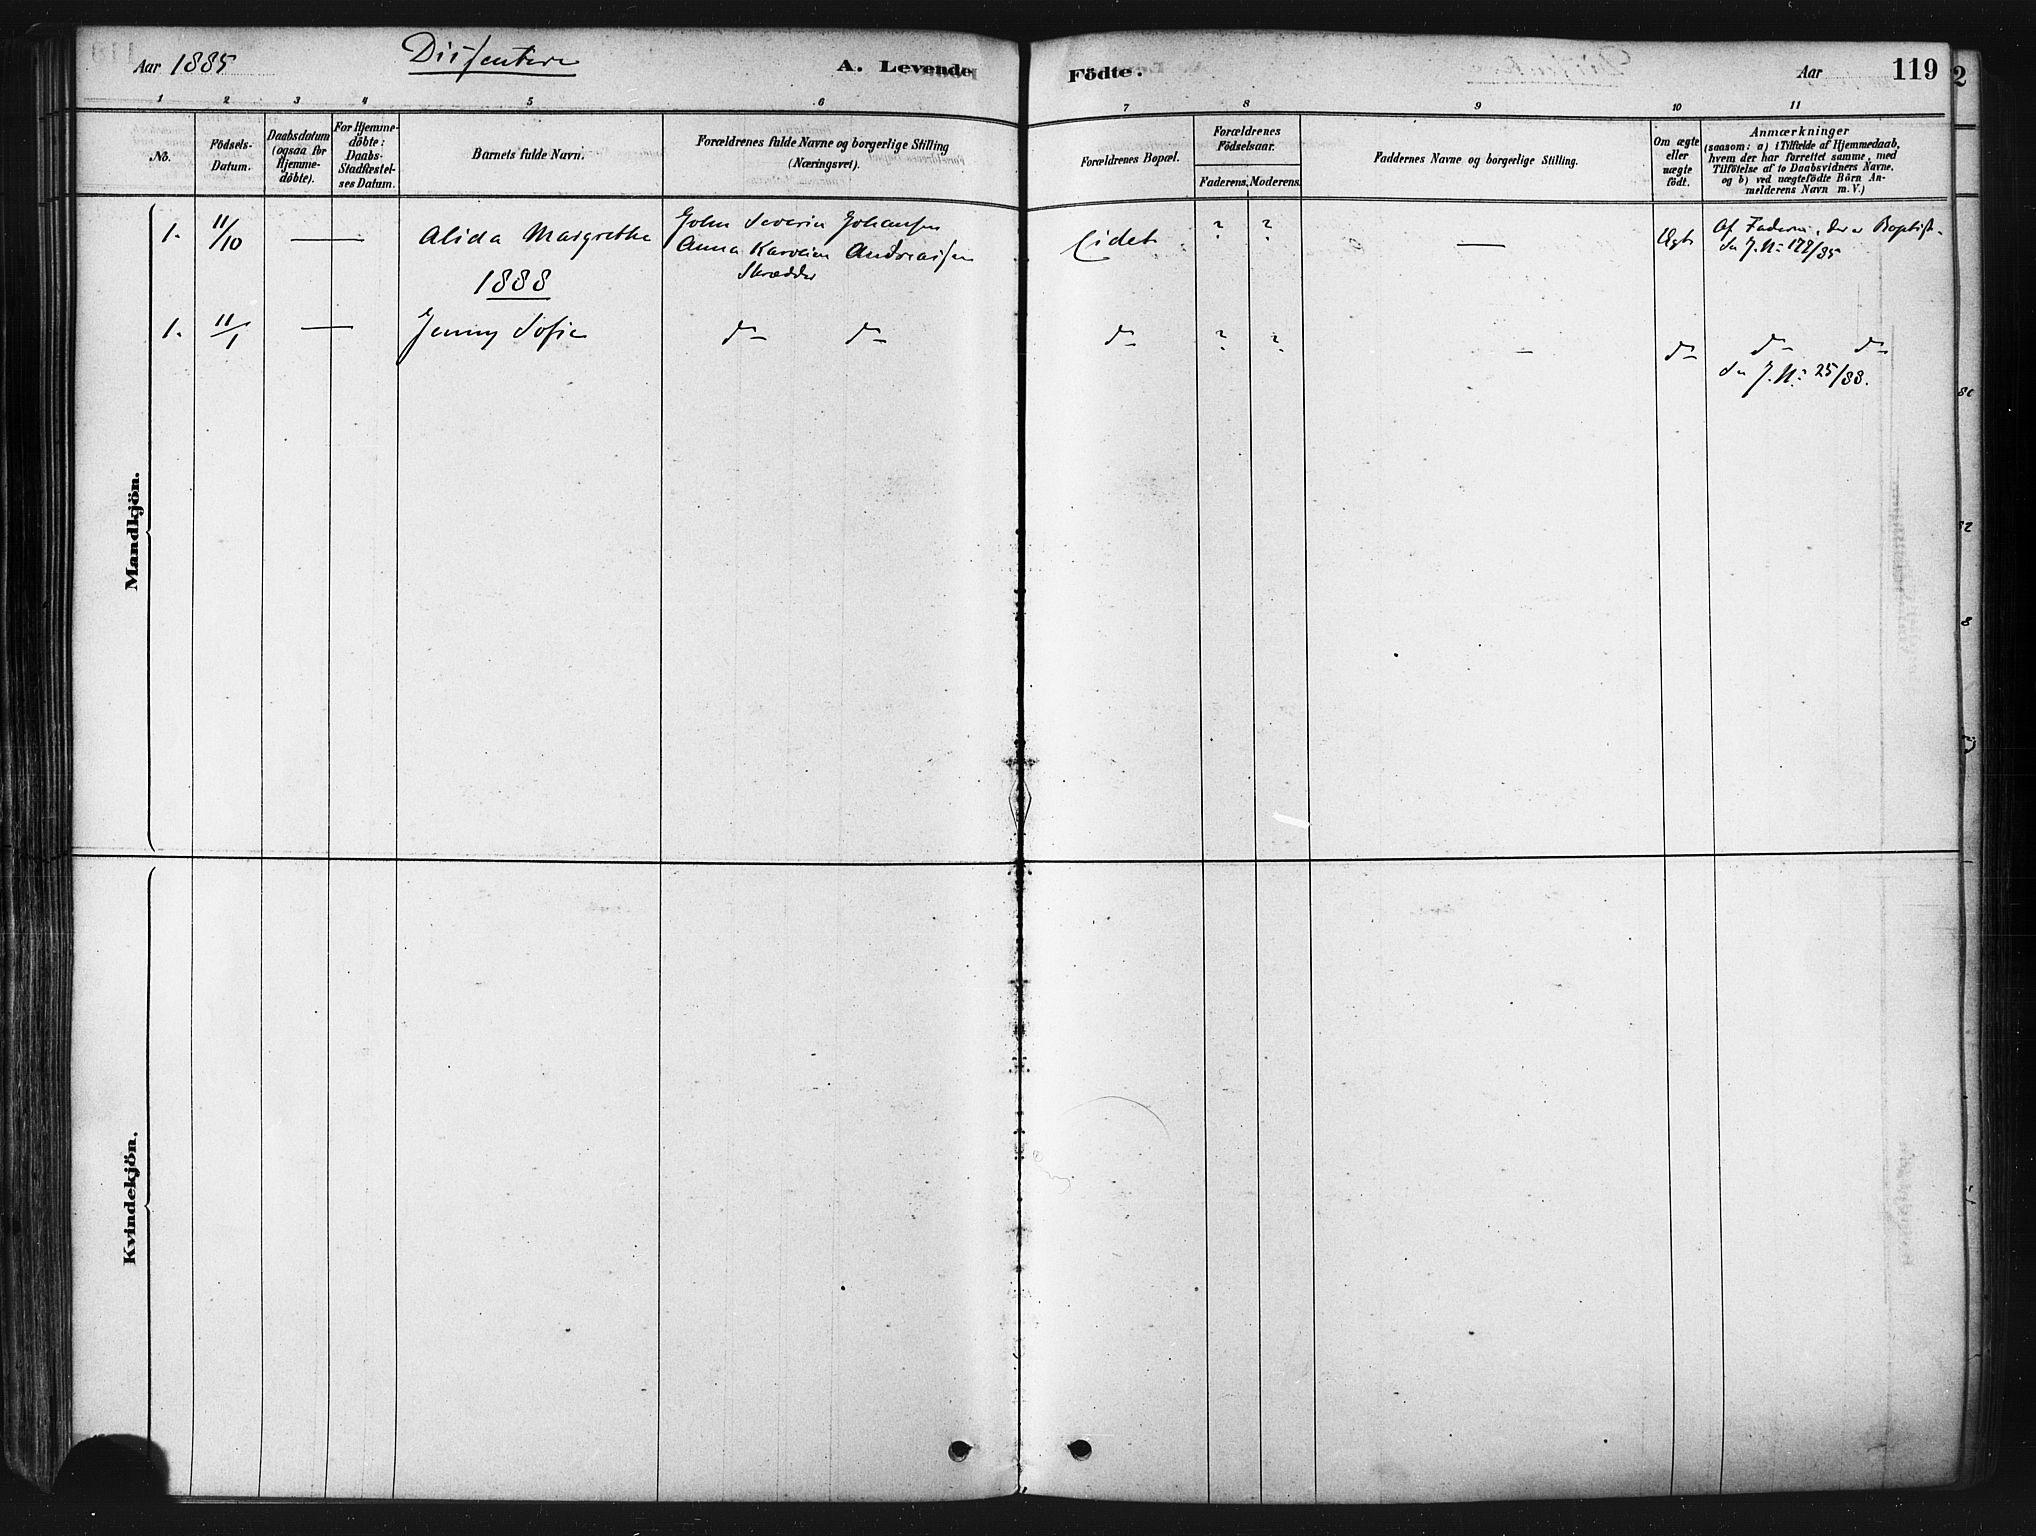 Aar 1885 Dissentere A. Levende Födte. Aar 119
1 2 3 4 5 6 7 8 9 10 11
No.
Födsels-
Datum.
Daabsdatum
(ogsaa for
Hjemme-
döbte).
For Hjemme-
döbte:
Daabs-
Stadfæstel-
ses Datum.
Barnets fulde Navn.
Forældrenes fulde Navne og borgerlige Stilling
(Næringsvei).
Forældrenes Bopæl.
Forældrenes
Födselsaar.
Faderens. Moderens.
Faddernes Navne og borgerlige Stilling.
Om ægte
eller
uægte
födt.
Anmærkninger
(saasom: a) i Tilfælde af Hjemmedaab,
hvem der har forrettet samme, med
Tilföielse af to Daabsvidners Navne,
og b) ved uægtefödte Börn An-
melderens Navn m.V.)
Mandkjön.
1. 11/10 — Alida Margrethe
John Severin Johansen
Anna Karoline Andreassen
Skrædder
Eidet ? ? — Ægte
Af Faderen, der er Baptist.
J. N: 172/85
1888
1. 11/1 — Jenny Sofie do do do ? ? — do do do
J. N: 25/88.
Kvindekjön.